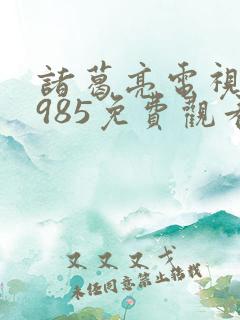 諸葛亮電視
985免費觀看
又又又戈
未经同意禁止搭载